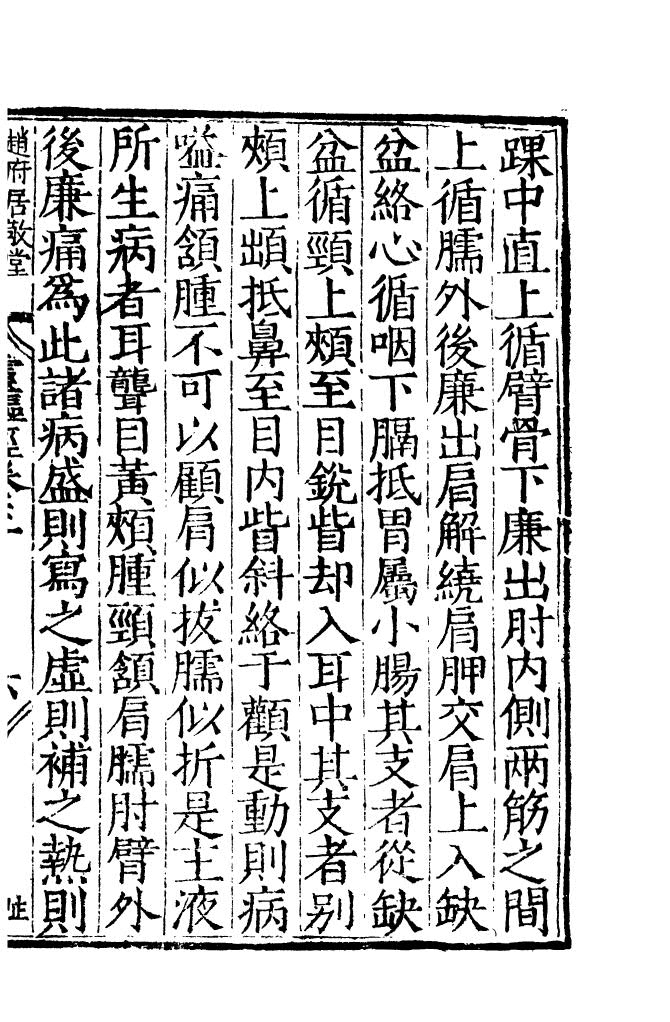 踝中直上循臂骨下廉出肘内側兩筋之間
上循臑外後廉出肩解繞肩胛交肩上入缺
盆絡心循咽下膈抵胃屬小腸其支者從缺
盆循頸上頰至目銳眥却入耳中其支者别
頰上䪼抵鼻至目内眥斜絡于顴是動則病
嗌痛頷腫不可以顧肩似拔臑似折是主液
所生病者耳聾目黃頰腫頸頷肩臑肘臂外
後廉痛爲此諸病盛則寫之虛則補之熱則
趙府居敬堂